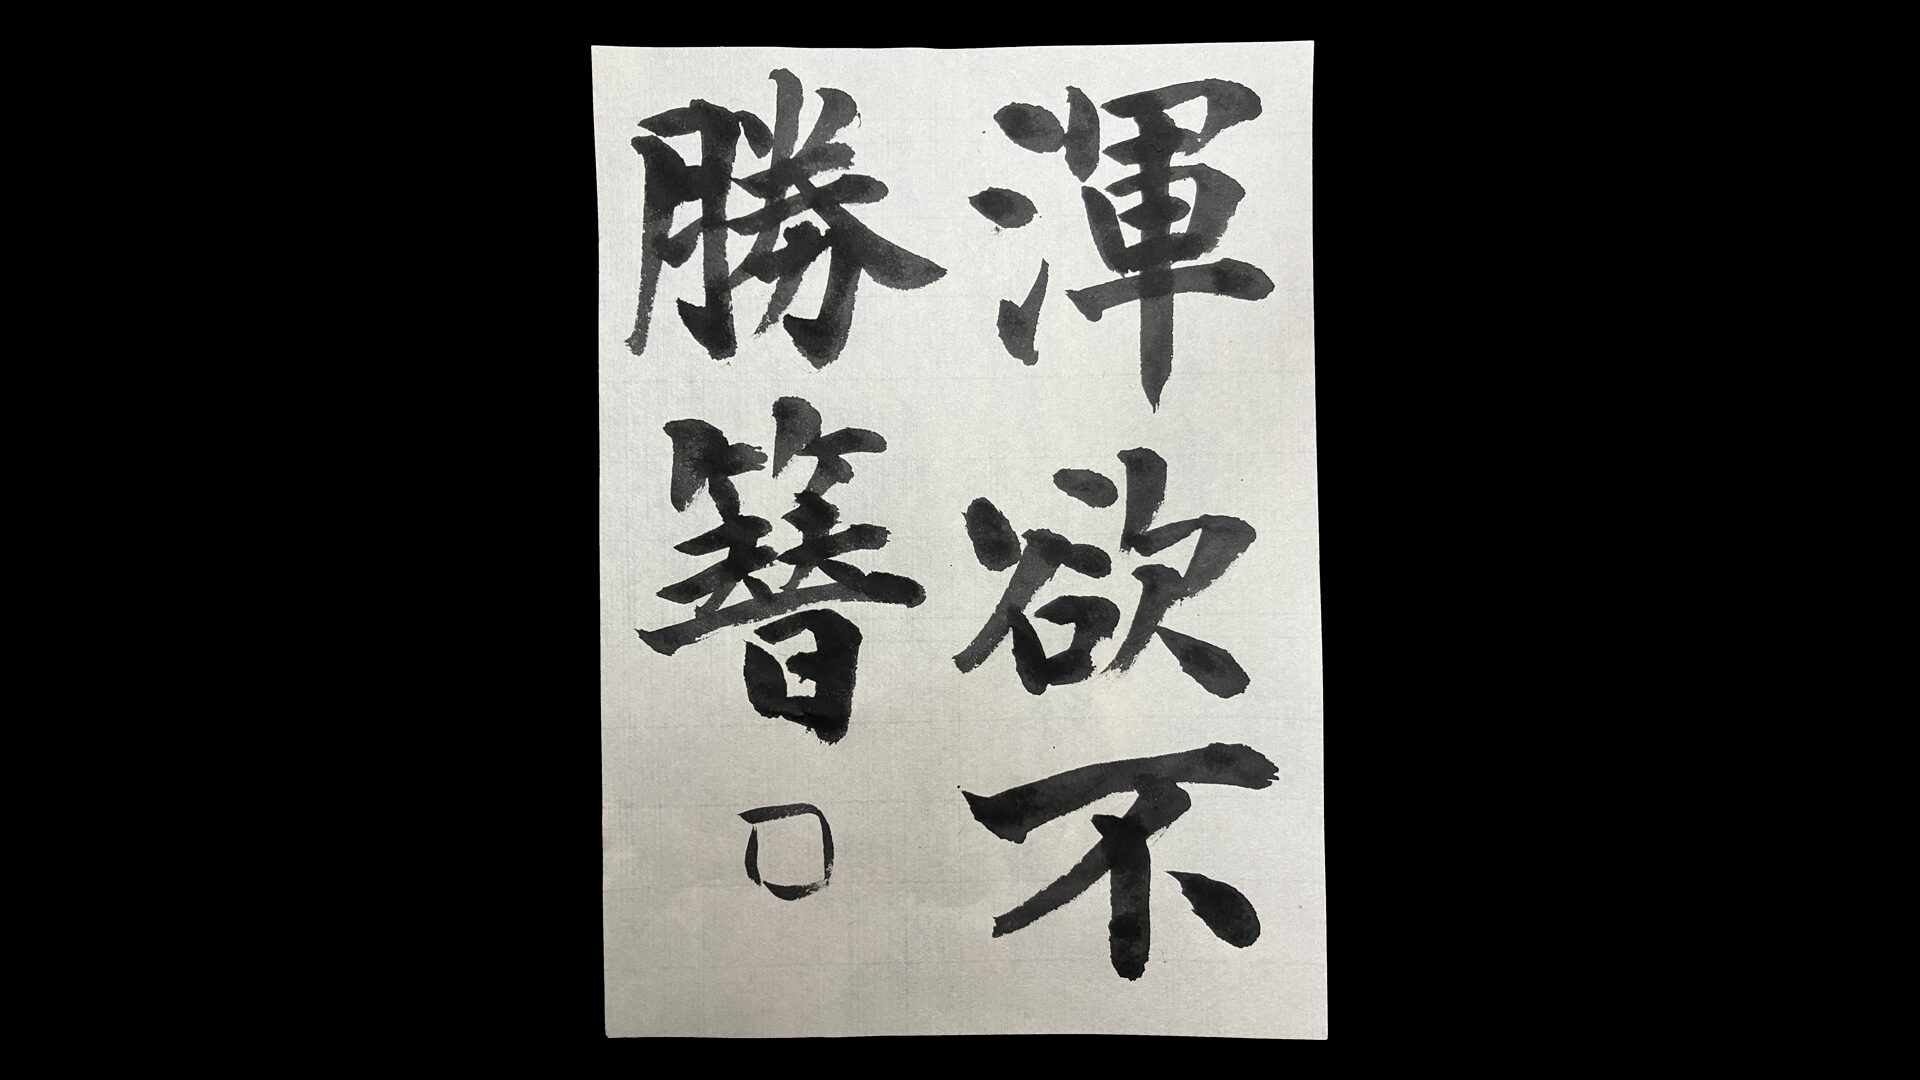 渾欲不
勝簪